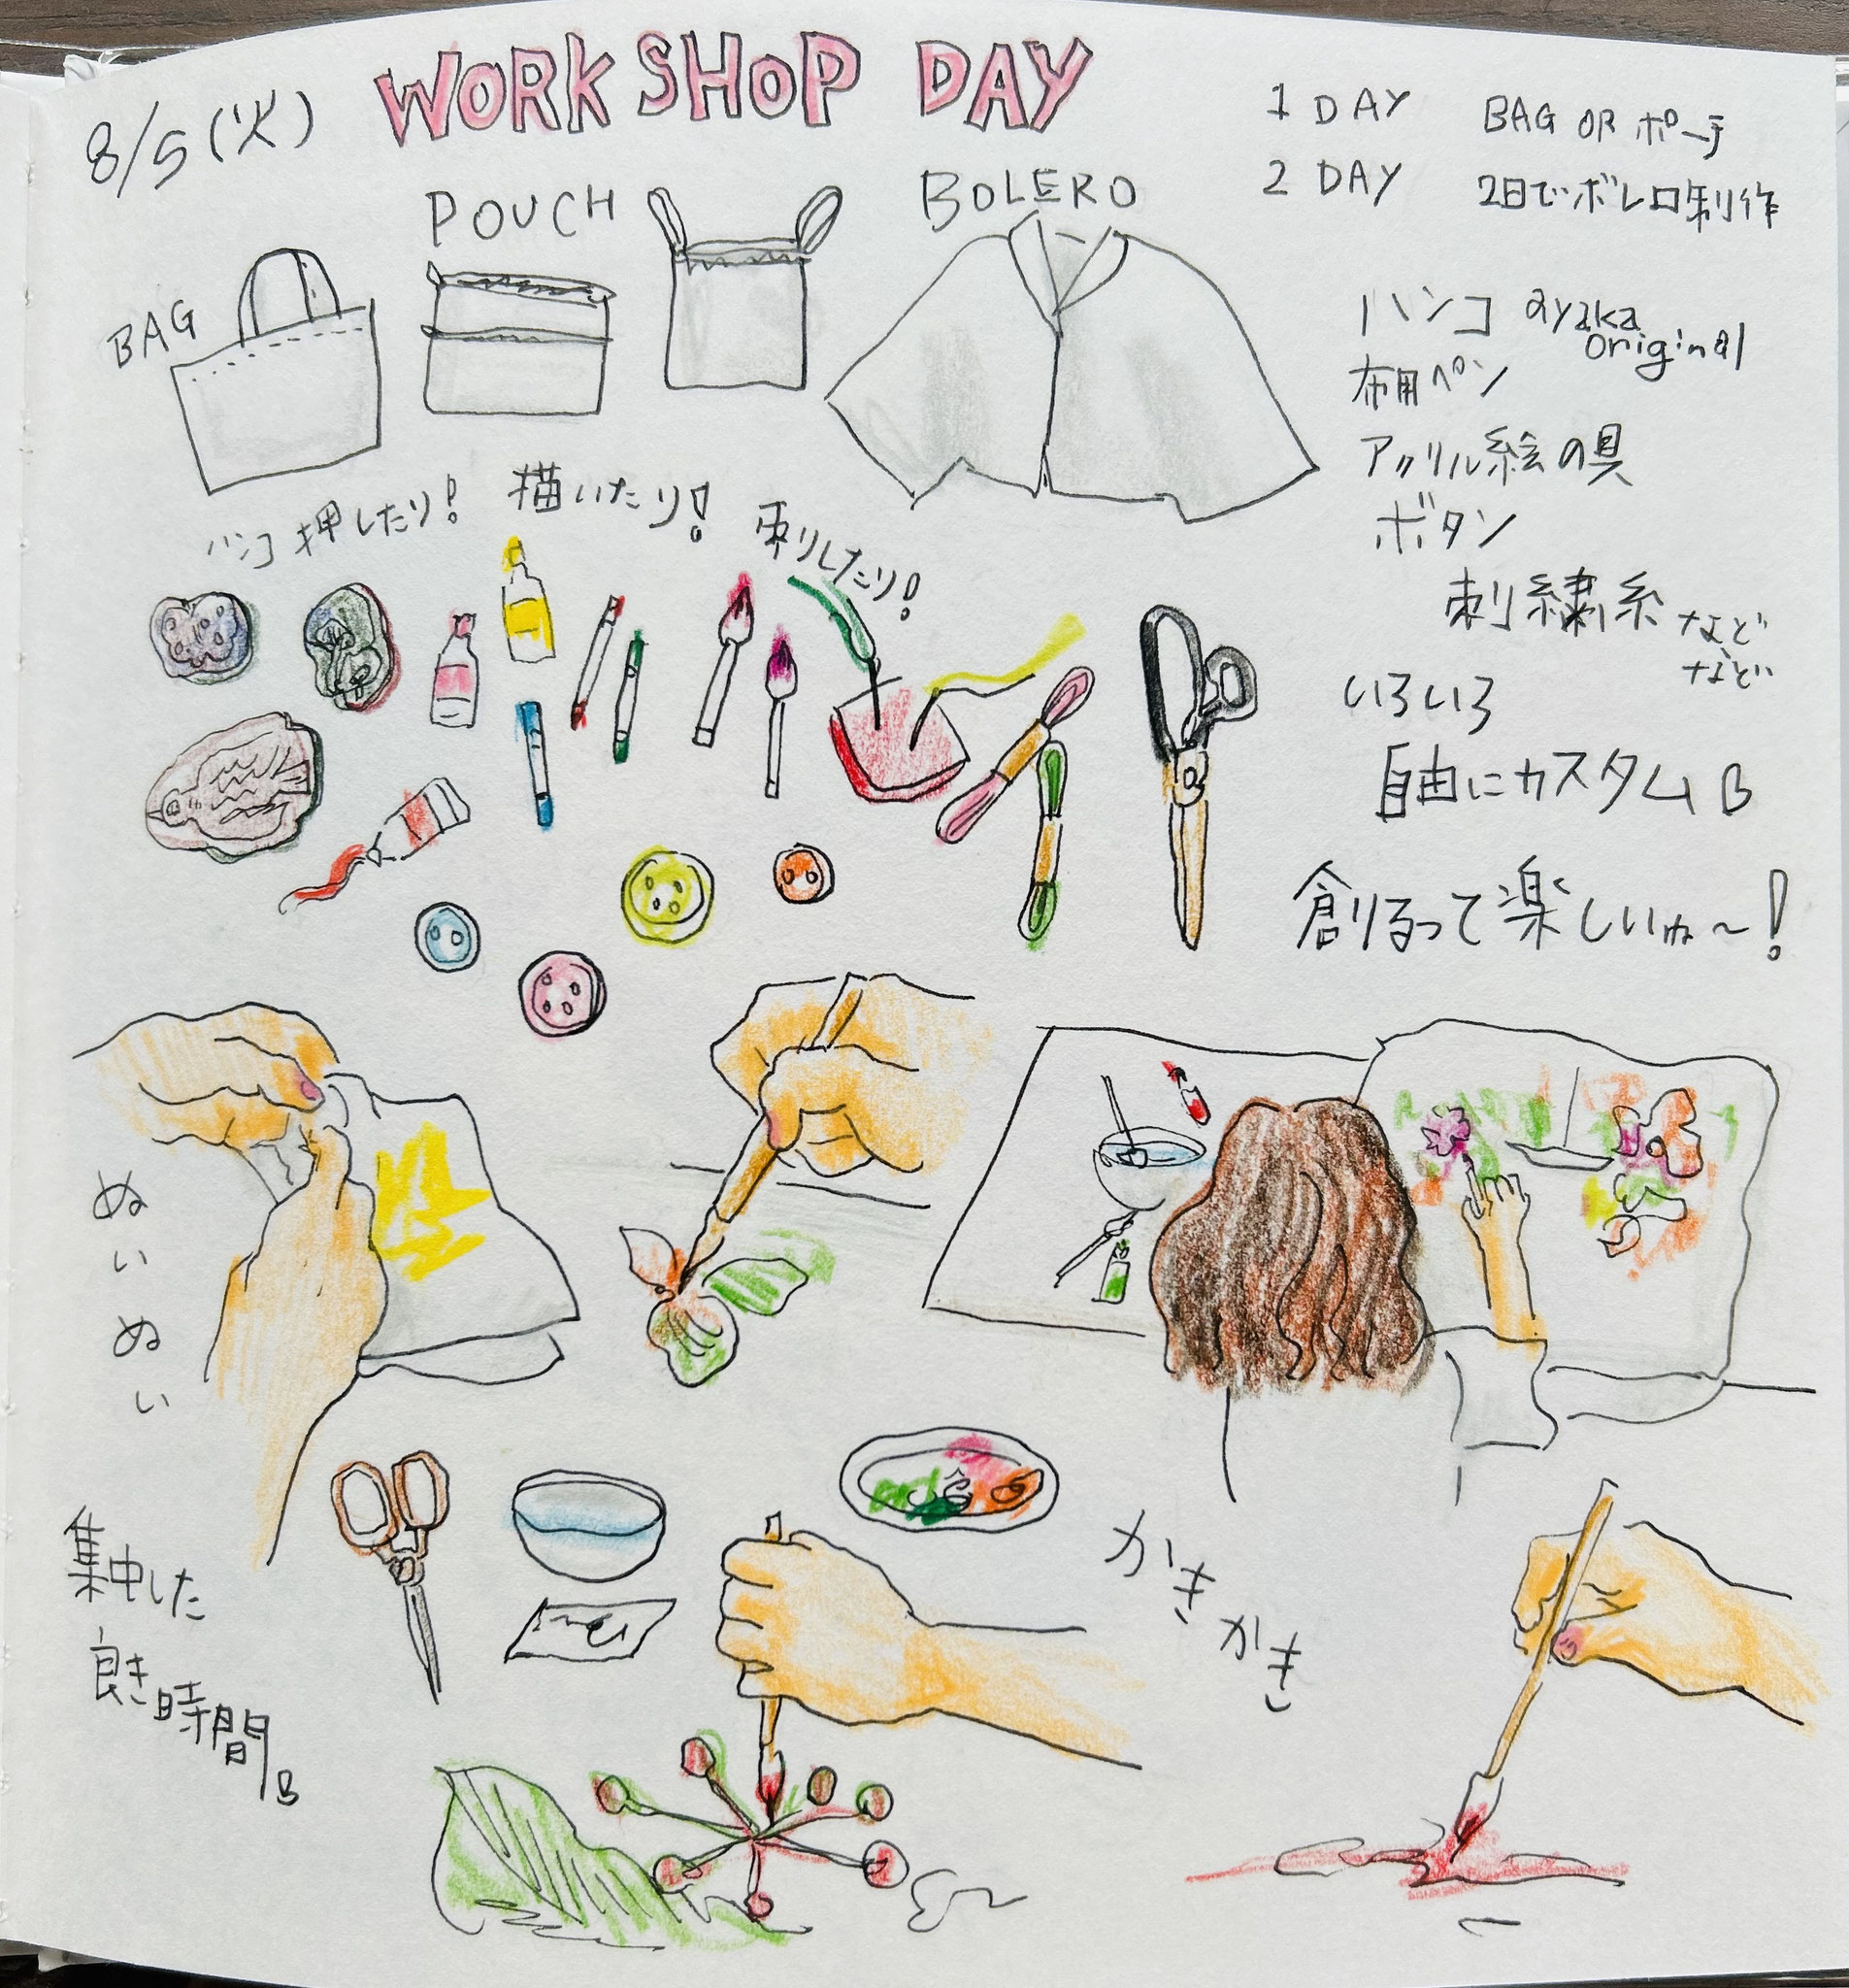 8/5(火)
WORK SHOP DAY
1 DAY BAG OR ポーチ
2 DAY 2日でボレロ制作
BAG
POUCH
BOLERO
ハンコ ayaka
original
布用ペン
アクリル絵の具
ボタン
刺繍糸 など
など
いろいろ
自由にカスタム
ハンコ押したり!
描いたり!
刺りしたり!
創るって楽しいね〜!
ぬいぬい
かきかき
集中した
良き時間